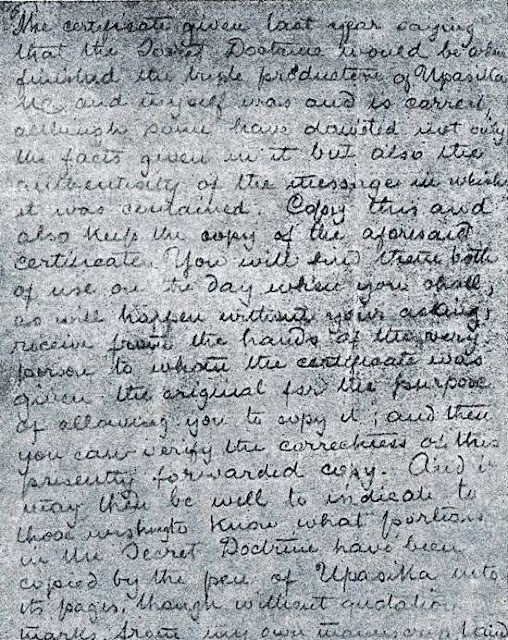 The certificate given last year saying
that the Secret Doctrine would be when
finished the triple production of Upasika
M∴ and myself was and is correct,
although some have doubted not only
the facts given in it but also the
authenticity of the message in which
it was contained. Copy this and
also keep the copy of the aforesaid
certificate. You will find them both
of use on the day when you shall,
as will happen without your asking,
receive from the hands of the very
person to whom the certificate was
given the original for the purpose
of allowing you to copy it; and then
you can verify the correctness of this
presently forwarded copy. And it
may then be well to indicate to
those wishing to know what portions
in the Secret Doctrine have been
copied by the pen of Upasika into
its pages, though without quotation
marks, from my own manuscript and